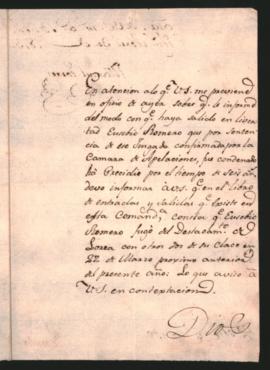 En atencion alo q.e V.S. me previene
en oficio de ayer sobre q.e le informe
del modo con q.e haya salido en liver
tad Eusebio Romero que por senten
cia de ese Juzgado confirmada por la
Camara de Apelaciones, fue condenado
a Presidio por el tiempo de seis años
devo informar a V.S. q.e en el Libro
de entradas y salidas q.e existe en
esta Comand.a consta q.e Eusebio
Romero fugó del destacam.to de
Lorea con otros dos de su clace en
22 de Marzo proximo anterior
del presente año. Lo que aviso a
V.S. en contextacion
Dios